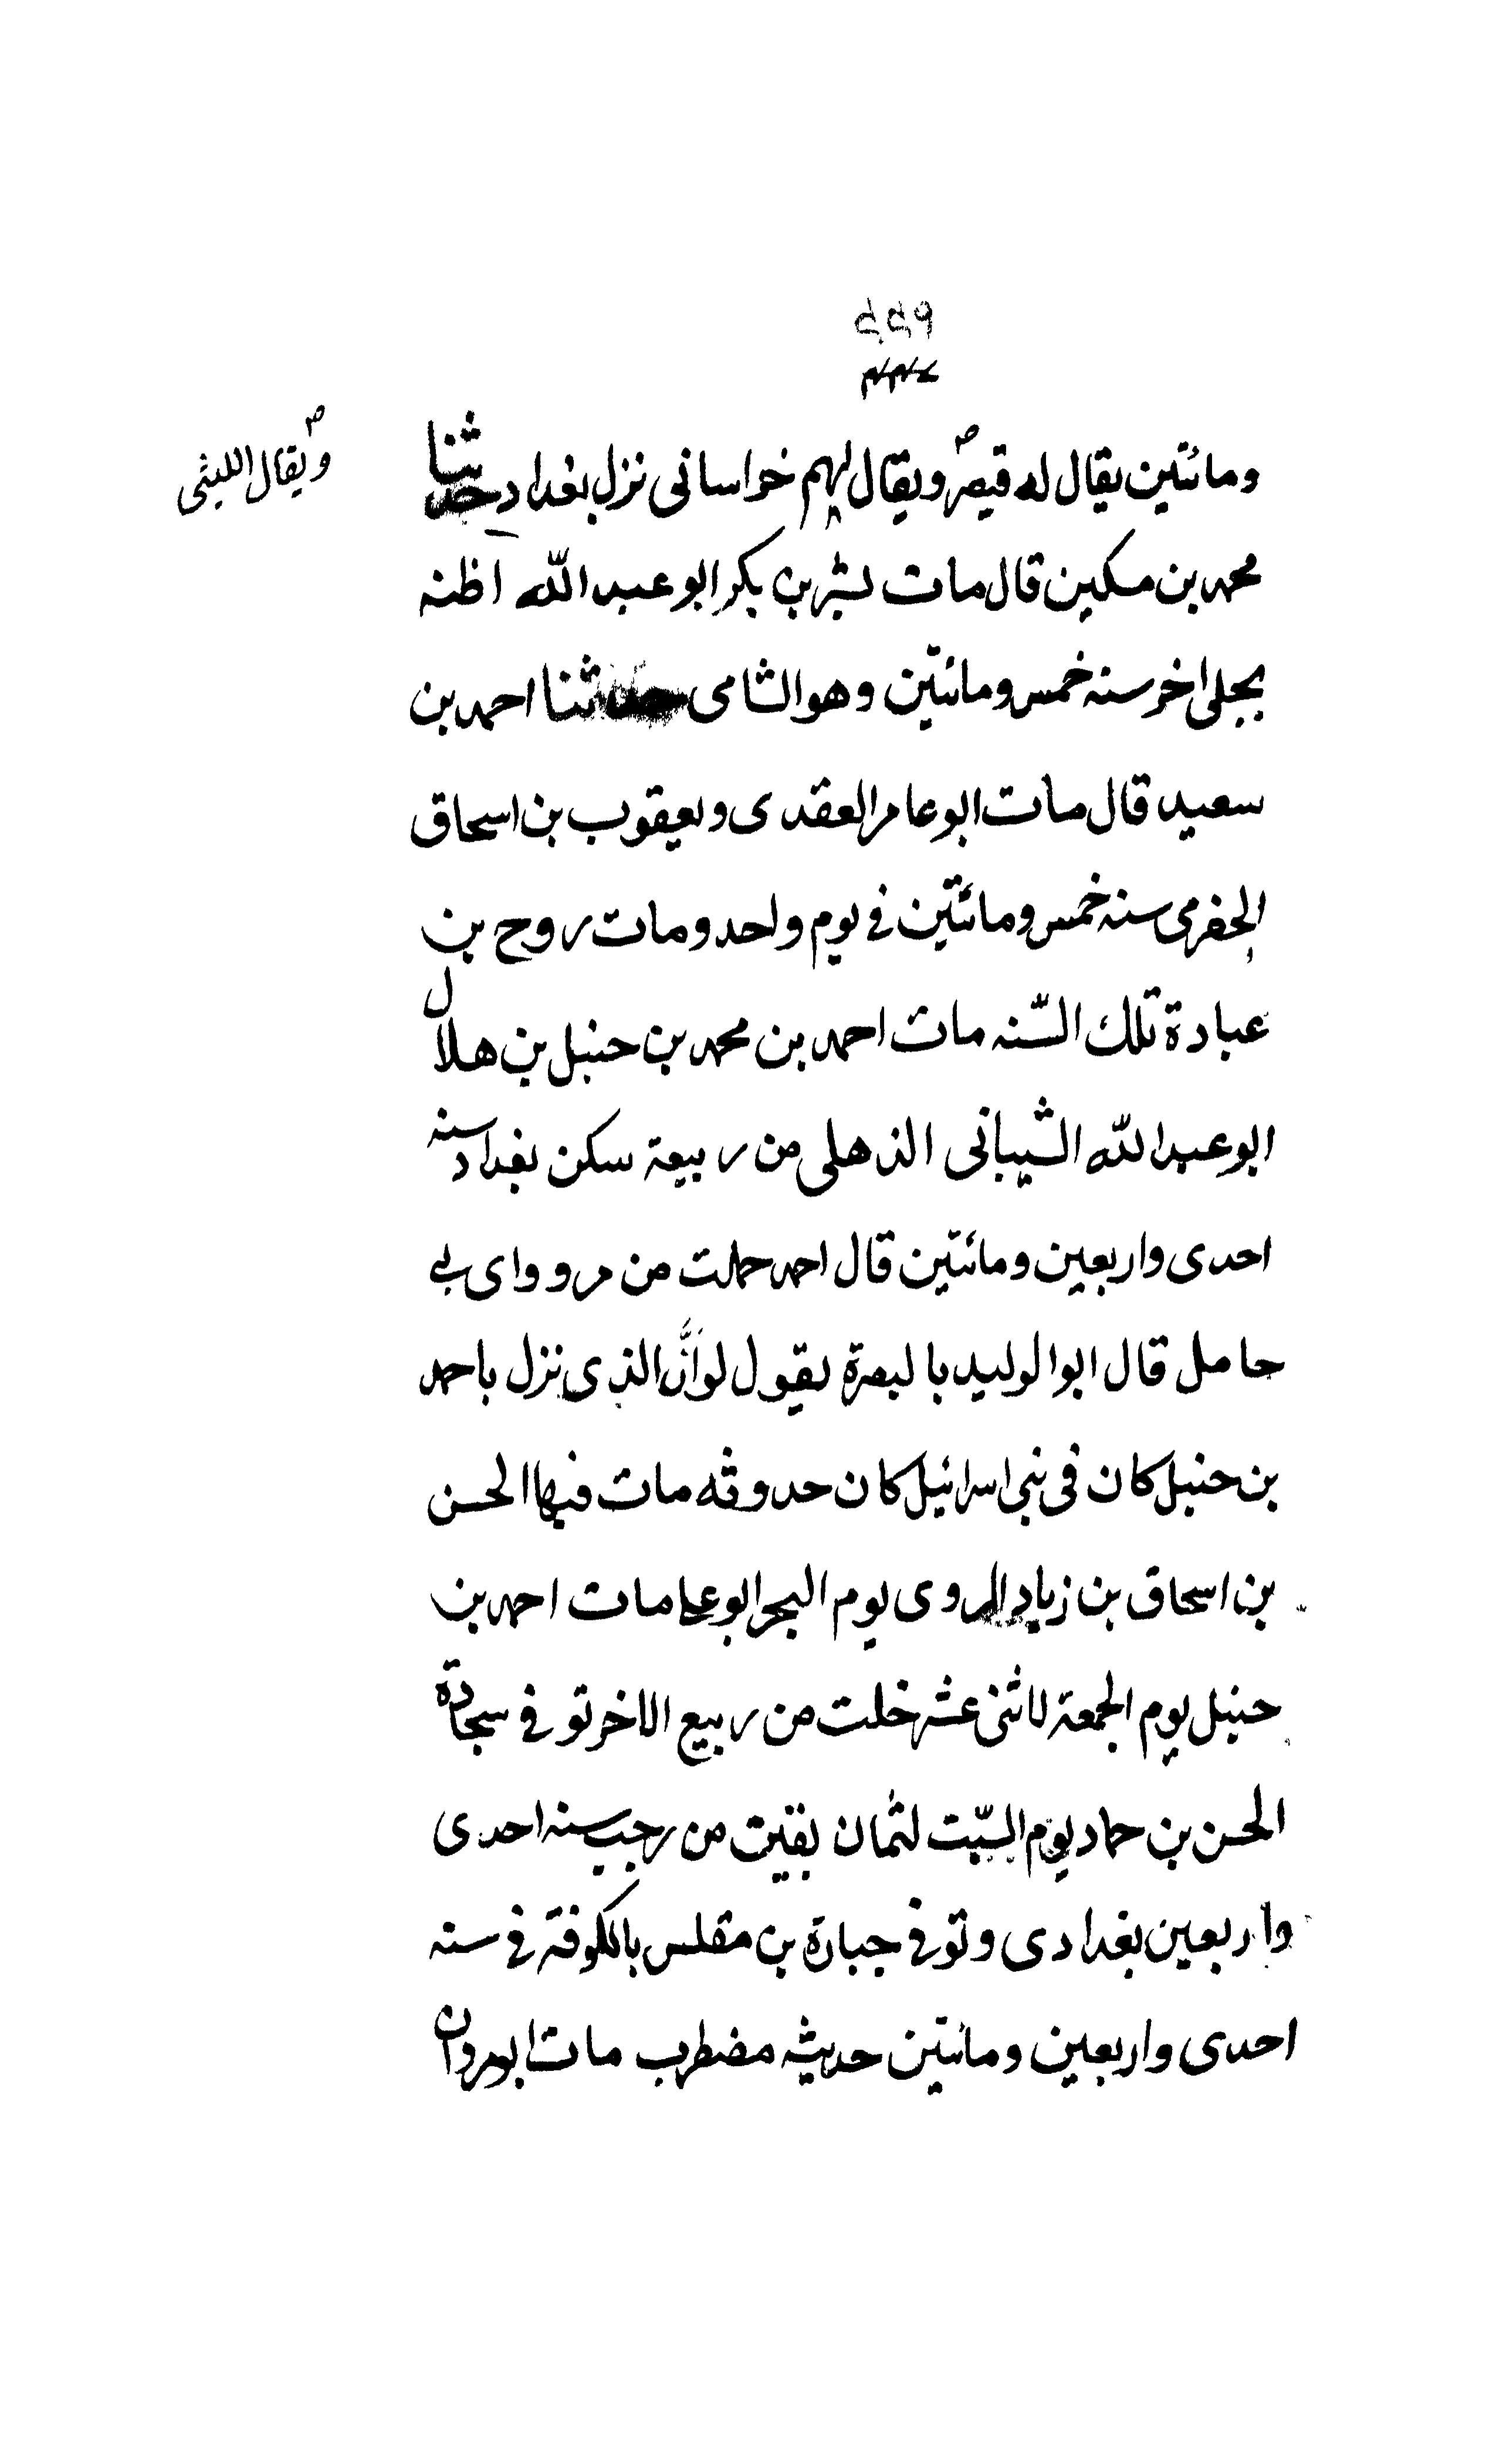 ومائتين يقال له قيصر ويقال لهم خراسانى نزل بغداد حدثنا
ويقال الليثى
محمد بن مسكين قال مات بشر بن بكر ابو عبد الله اظنه
بجلى اخر سنه خمس ومائتين وهو الشامى حدثنا احمد بن
سعيد قال مات ابو عامر العقدى ويعقوب بن اسحاق
الحضرمى سنه خمس ومائتين فى يوم واحد ومات روح بن
عبادة تلك السّنه مات احمد بن محمد بن حنبل بن هلال
ابو عبد الله الشيبانى الذهلى من ربيعة سكن بغداد سنه
احدى واربعين ومائتين قال احمد حملت من مرو وامى بى
حامل قال ابو الوليد بالبصرة يقول لو أنَّ الذى نزل باحمد
بن حنبل كان فى بنى اسرائيل كان حدوثه مات فيها الحسن
بن اسحاق بن زياد المروى يوم النحر ابو على مات احمد بن
حنبل يوم الجمعة لاثنى عشر خلت من ربيع الاخر توفى سجادة
الحسن بن حماد يوم السّبت لثمان بقين من رجب سنه احدى
واربعين بغدادى وتوفى جبارة بن مغلس بالكوفة فى سنه
احدى واربعين ومائتين حديثه مضطرب مات ابو مروان